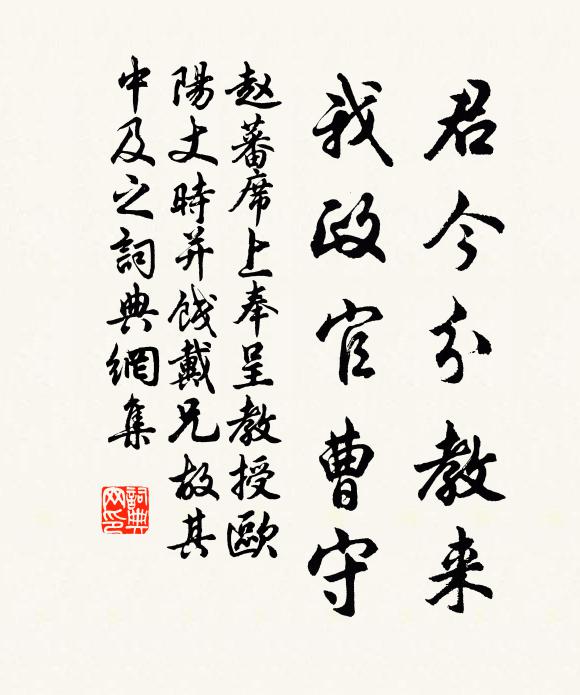 君今分教来
我政官曹守
赵蕃席上奉呈教授歐
陽丈時并餞戴兄故其
中及之詞典網集
詞典网印